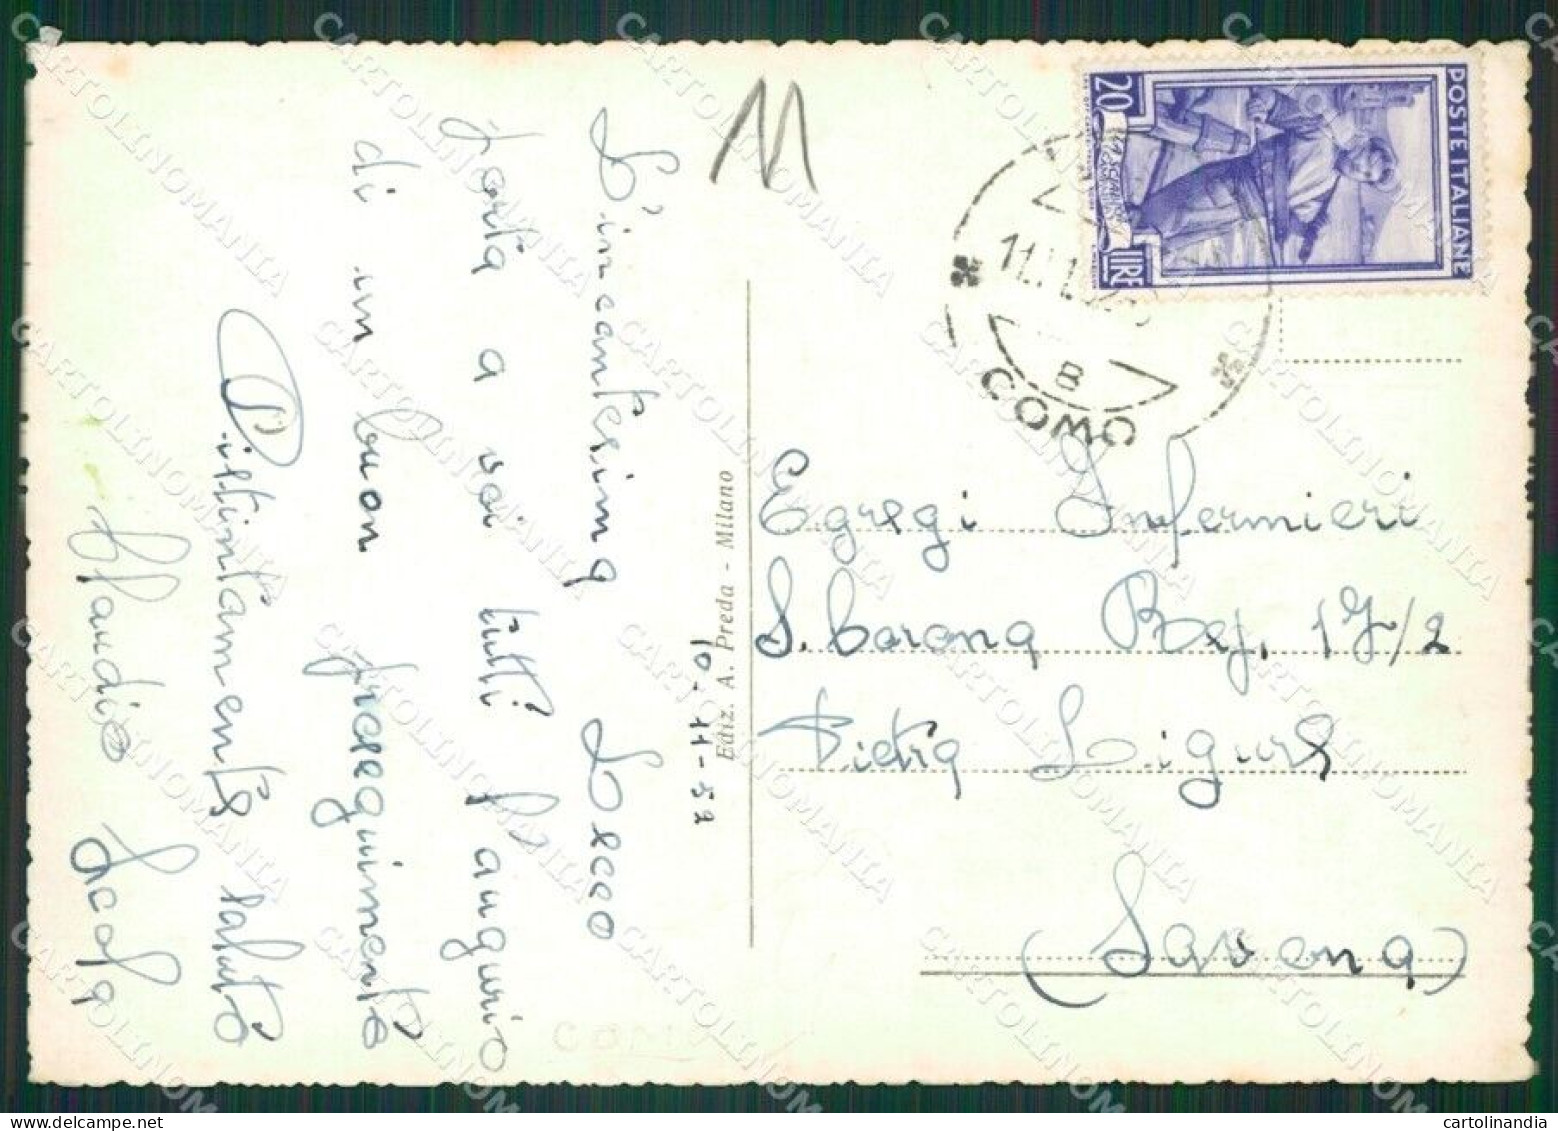 11
L'incantesimo Lecco
porta a voi tutti l'augurio
di un buon proseguimento
Distintamente saluto
Claudio
10-11-52
Ediz. A. Preda - Milano
POSTE ITALIANE
20
LIRE
COMO
B
Egregi Infermieri
S. Corona Rep. 17/2
Pietra Ligure
(Savona)
CARTOLINOMANIA
cartolinandia